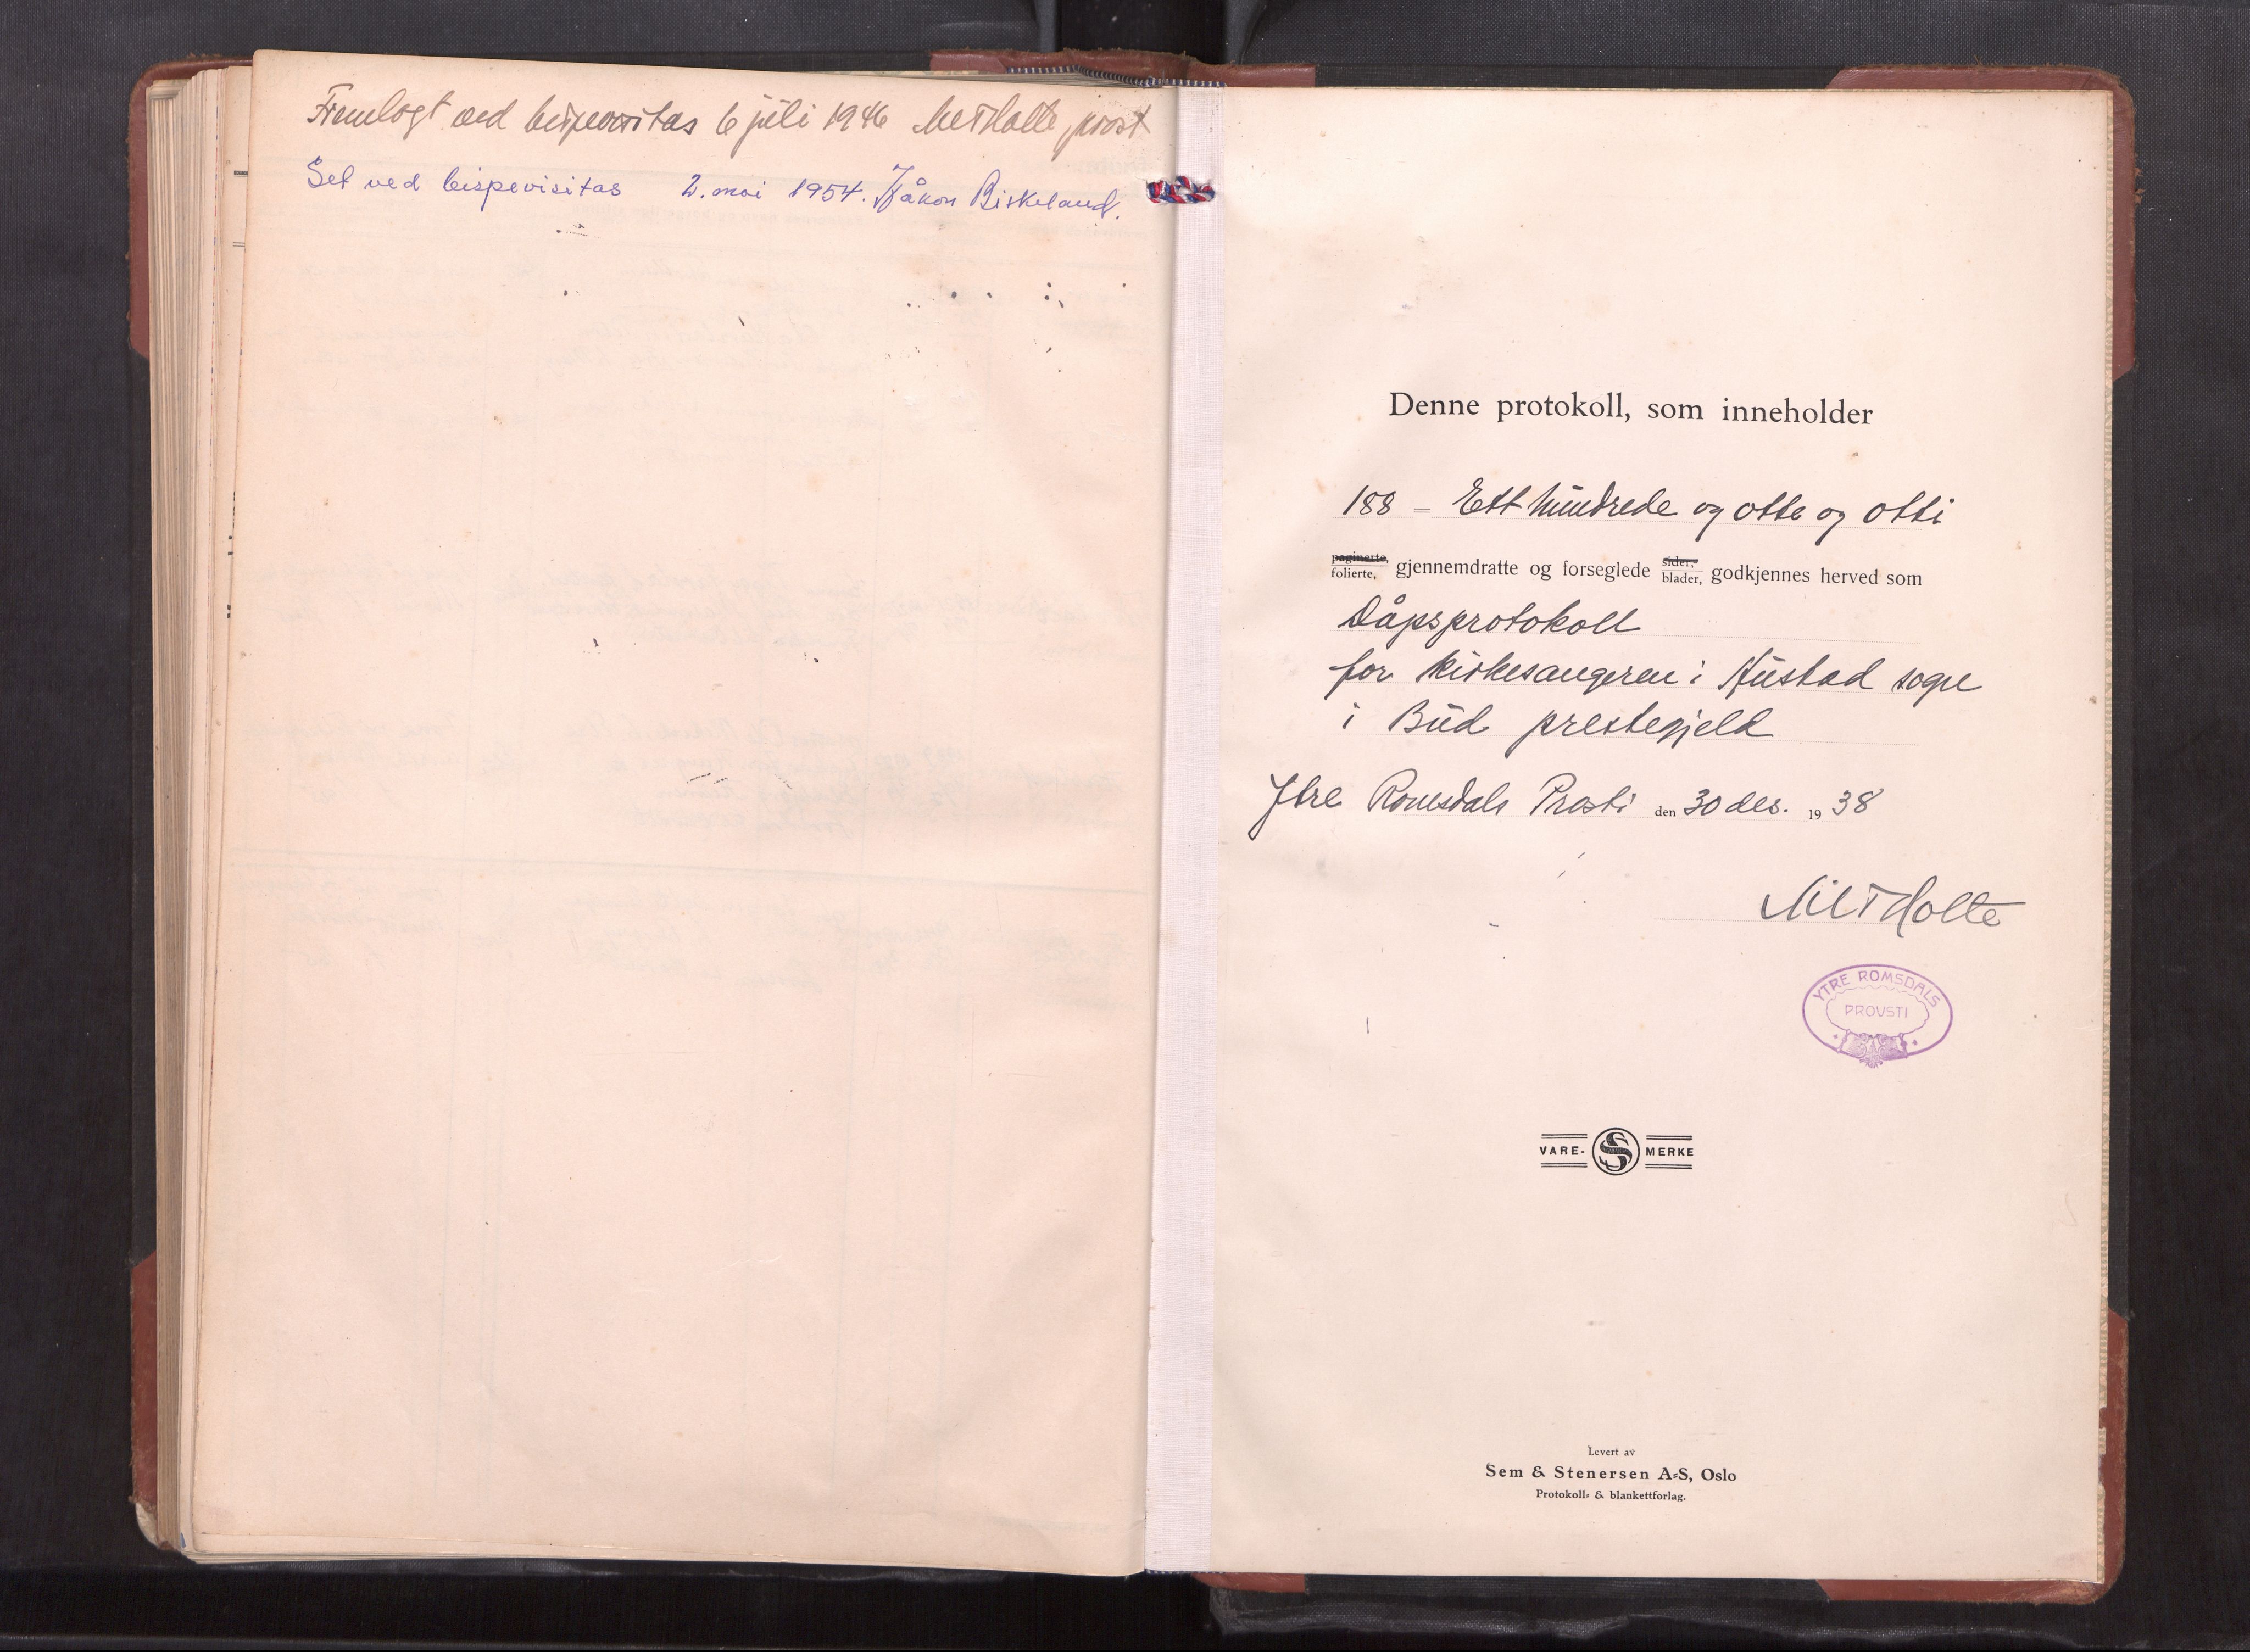 Fremlagt ved bispevisitas 6 juli 1946 Holte, prost
Set ved bispevisitas 2. mai 1954. Håkon Birkeland.
Denne protokoll, som inneholder
188 = Ett hundrede og otte og otti
paginerte,
folierte, gjennemdratte og forseglede sider, blader, godkjennes herved som
Dåpsprotokoll
for kirkesangeren i Hustad sogn
i Bud prestegjeld
Ytre Romsdals Prosti den 30 des. 1938
Holte
YTRE ROMSDALS
PROVSTI
VARE- S MERKE
Levert av
Sem & Stenersen A-S, Oslo
Protokoll- & blankettforlag.